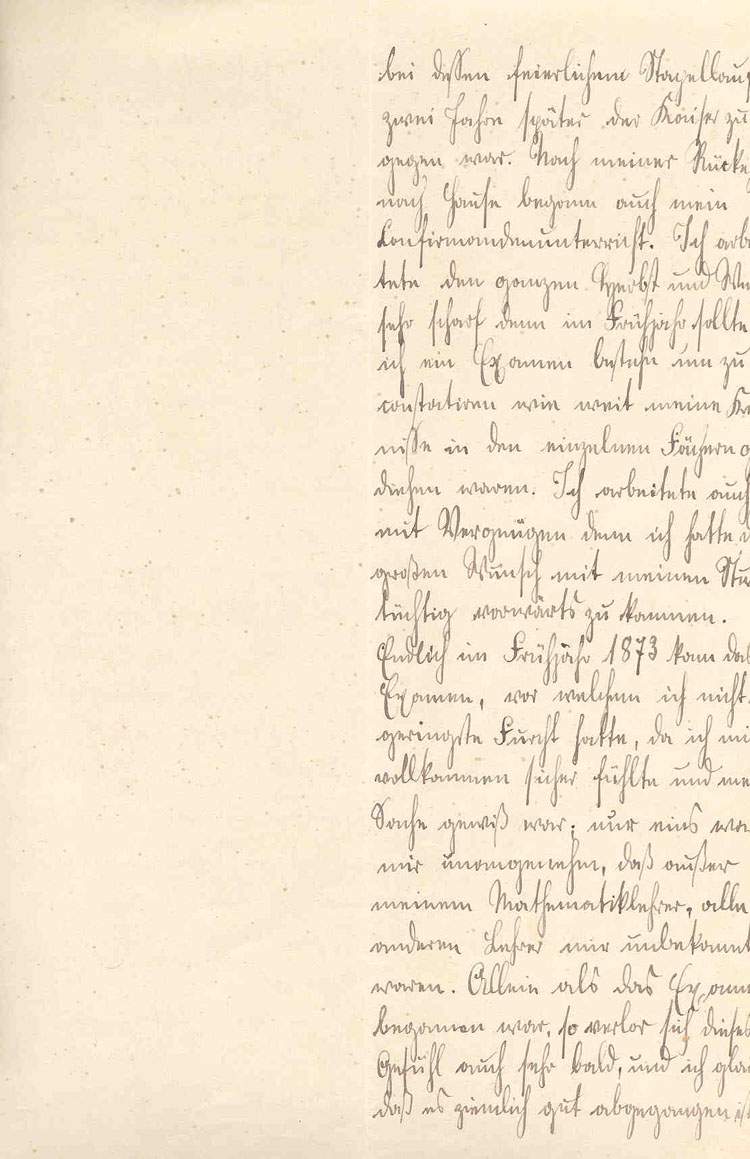 bei dessen feierlichem Stapellauf
zwei Jahre später der Kaiser zu
gegen war. Nach meiner Rücke
nach Hause begann auch mein
Confirmandenunterricht. Ich arbei
tete den ganzen Herbst und Win
sehr scharf denn im Frühjahr sollte
ich ein Examen bestehn um zu
constatiren wie weit meine Ke
nisse in den einzelnen Fächern g
diehen waren. Ich arbeitete auch
mit Vergnügen denn ich hatte d
großen Wunsch mit meinen Stu
tüchtig vorwärts zu kommen.
Endlich im Frühjahr 1873 kam das
Examen, vor welchem ich nicht
geringste Furcht hatte, da ich mi
vollkommen sicher fühlte und me
Sache gewiß war; nur eins wa
mir unangenehm, daß außer
meinem Mathematiklehrer, alle
anderen Lehrer mir unbekannt
waren. Allein als das Exame
begonnen war, so verlor sich dieses
Gefühl auch sehr bald, und ich glau
daß es ziemlich gut abgegangen ist